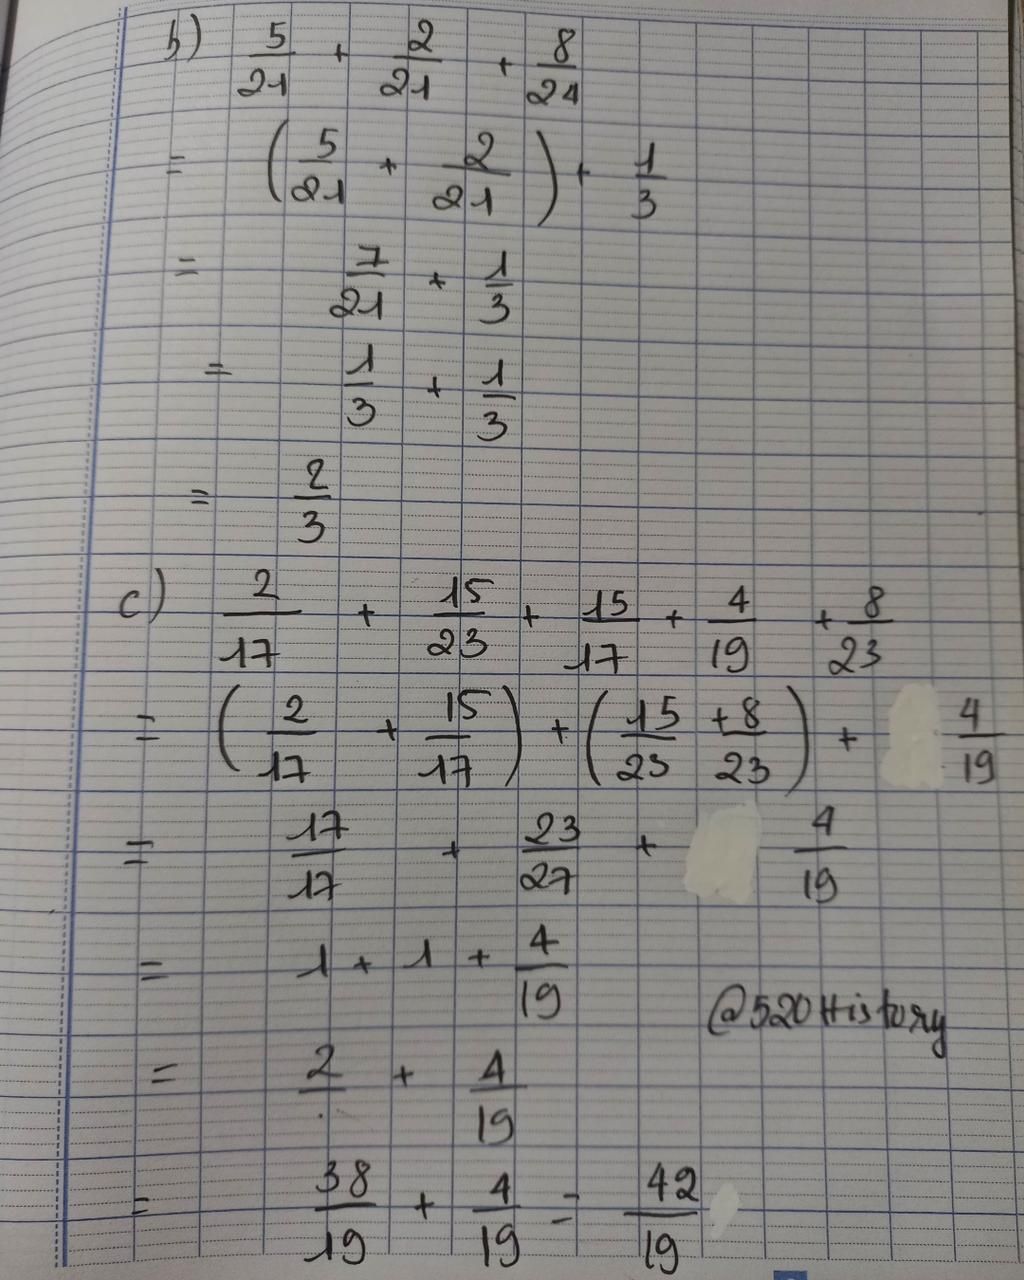 b) 5/21 + 2/21 + 8/24
= (5/21 + 2/21) + 1/3
= 7/21 + 1/3
= 1/3 + 1/3
= 2/3
c) 2/17 + 15/23 + 15/17 + 4/19 + 8/23
= (2/17 + 15/17) + (15/23 + 8/23) + 4/19
= 17/17 + 23/27 + 4/19
= 1 + 1 + 4/19
@520History
= 2/. + 4/19
= 38/19 + 4/19 = 42/19